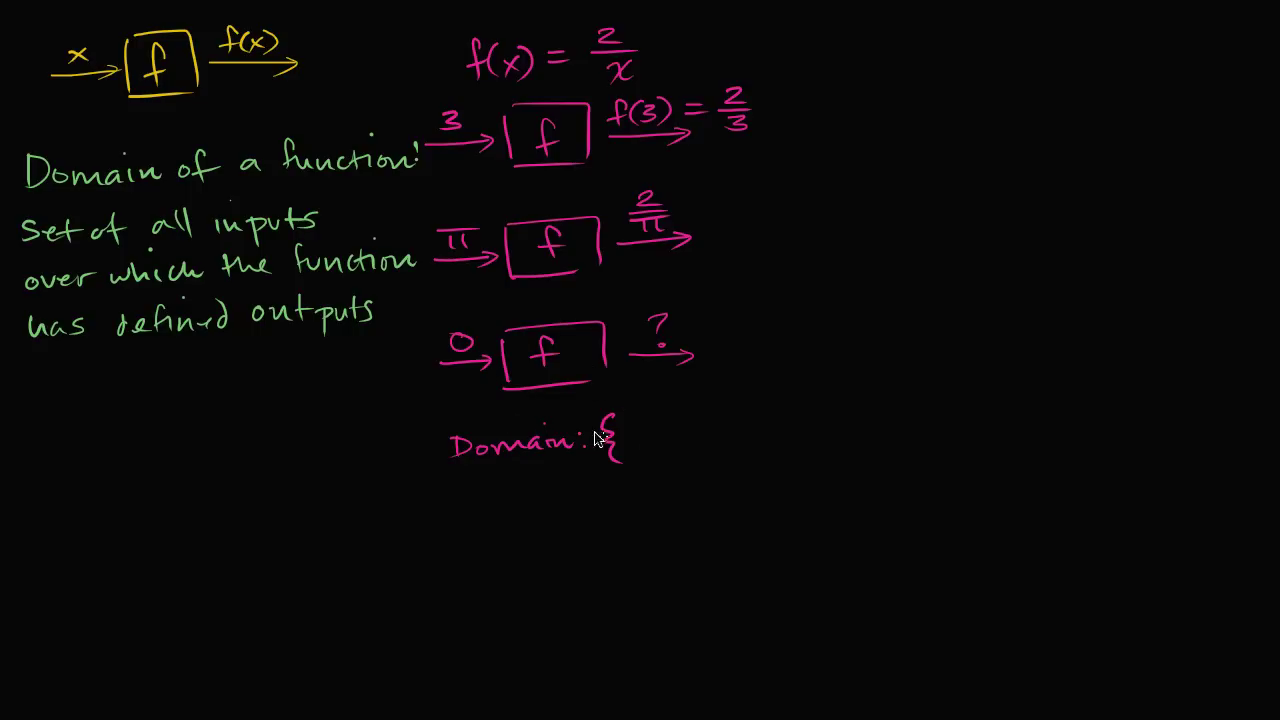 x f f(x)
f(x) = 2/x
3 f f(3) = 2/3
Domain of a function:
Set of all inputs
over which the function
has defined outputs
π f 2/π
0 f ?
Domain: {